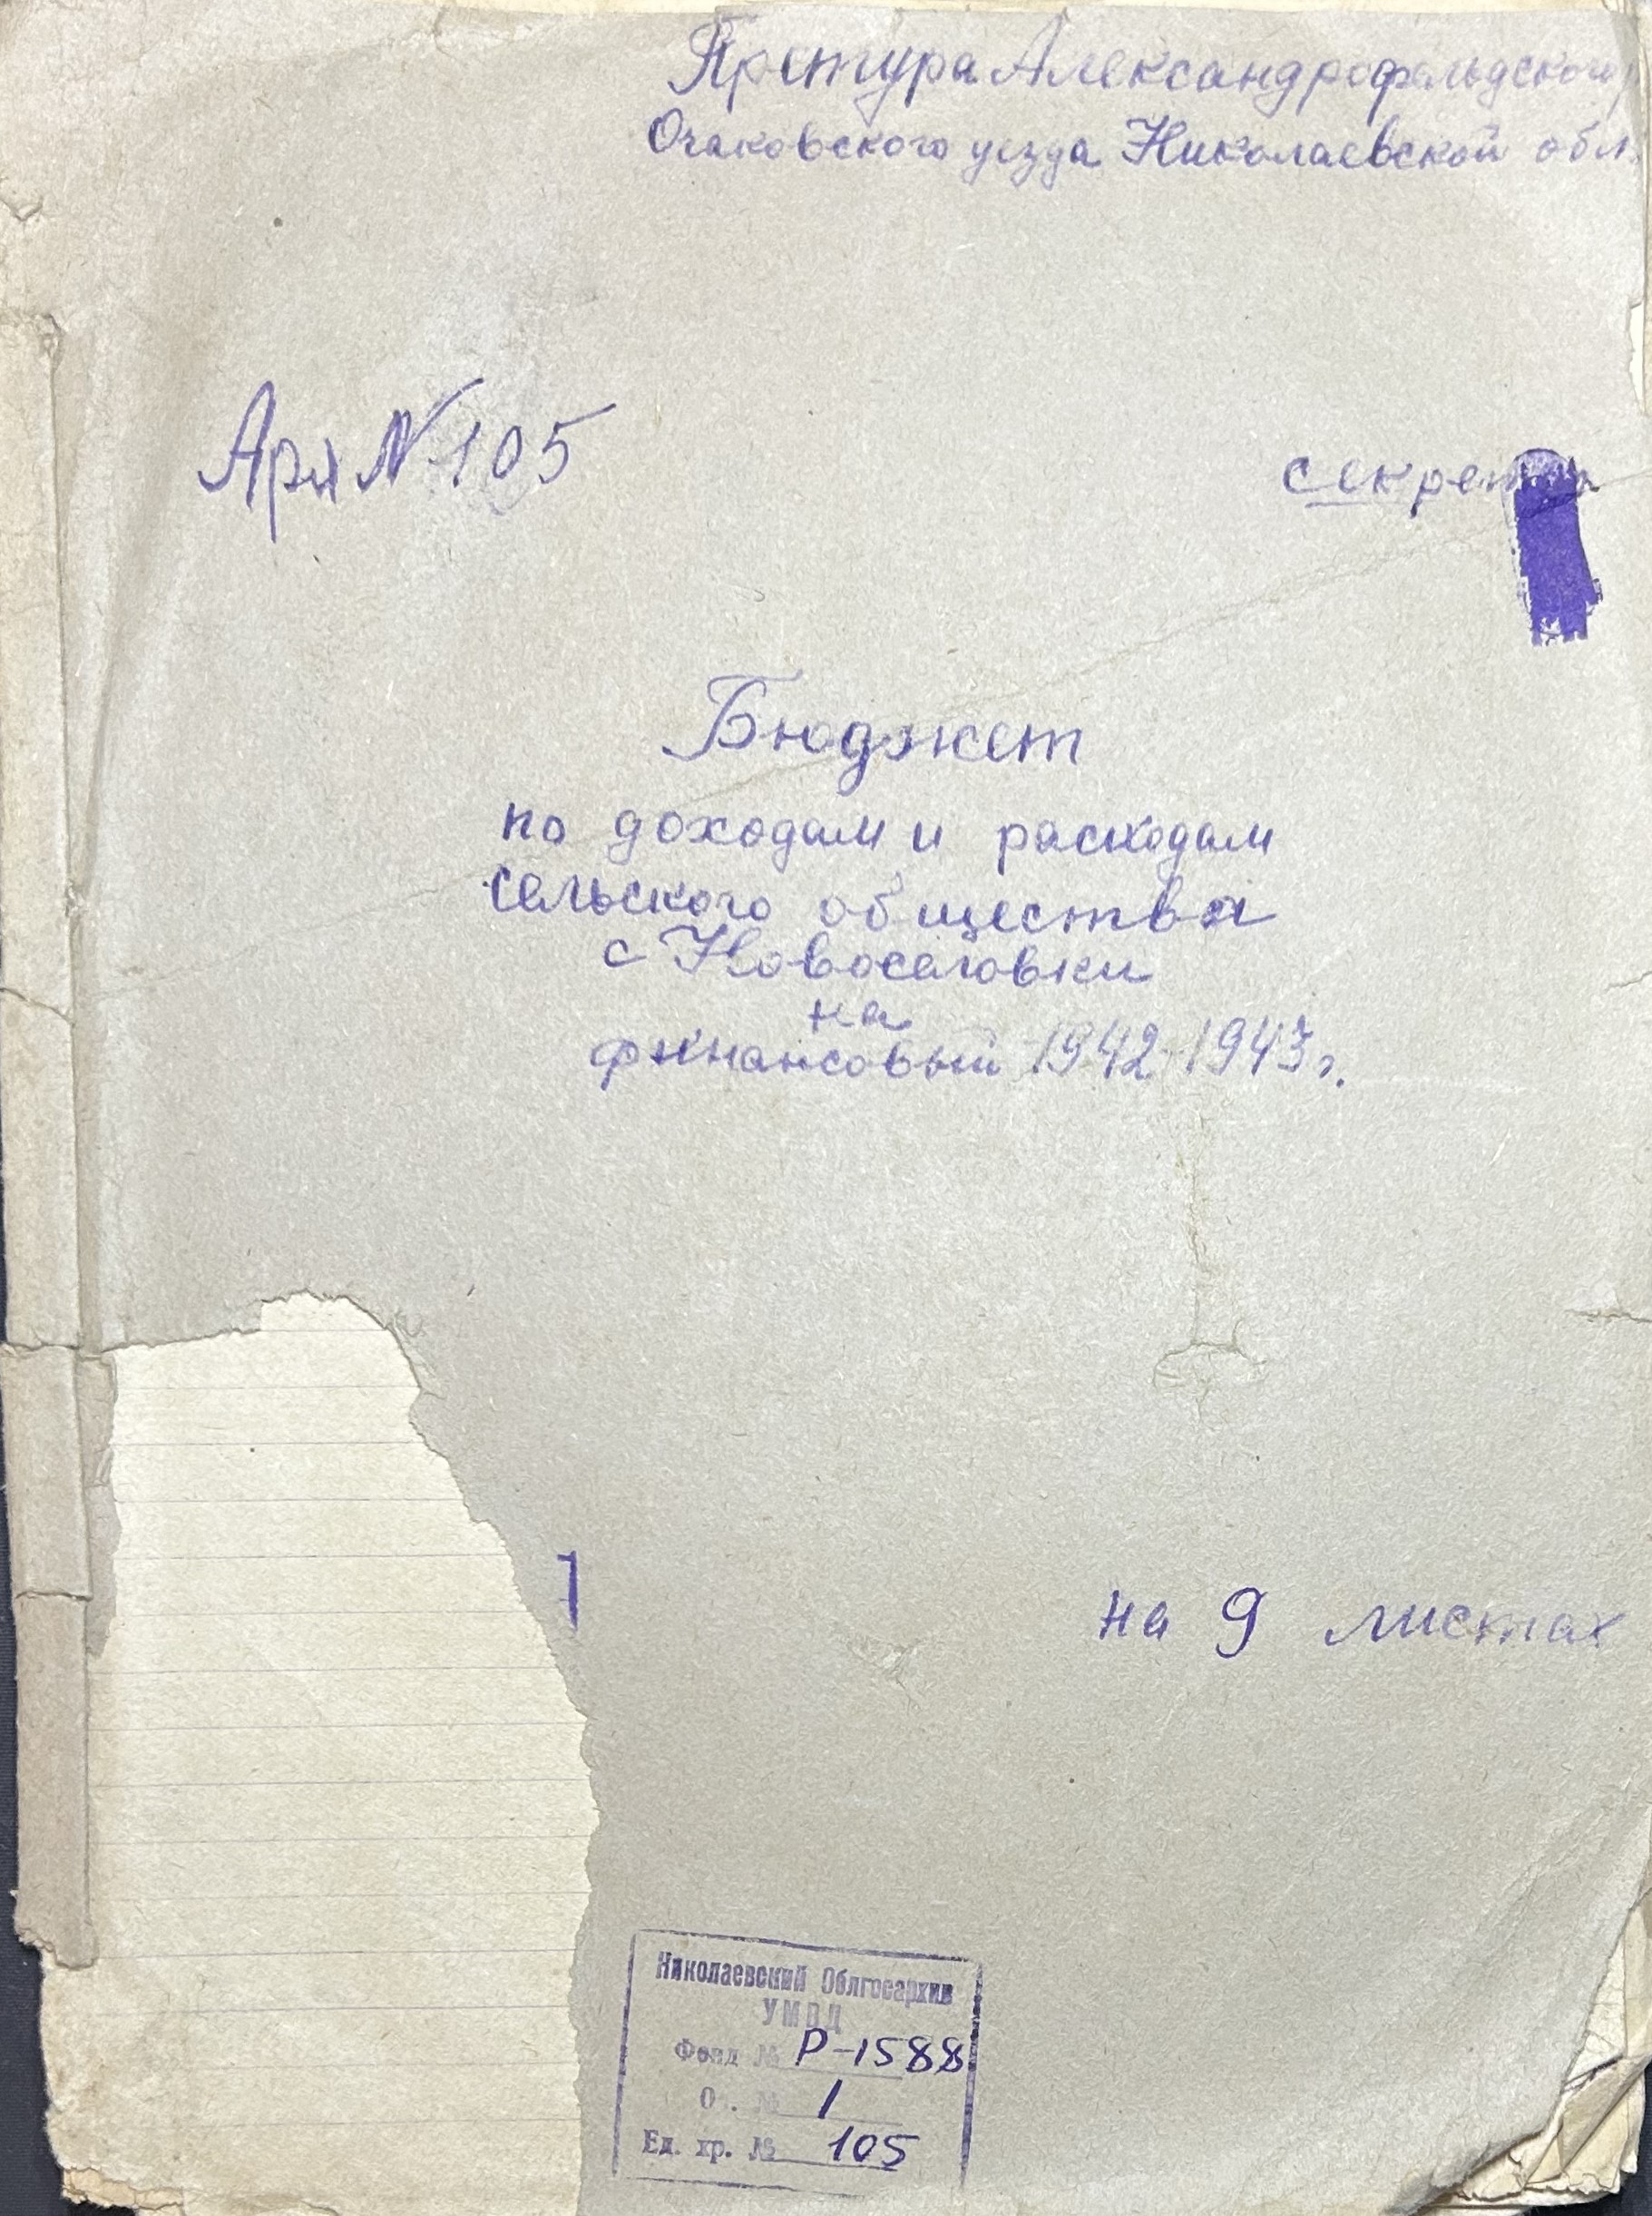 Претура Александрофельдского
Очаковского уезда Николаевской обл.
Арх № 105
секретн
Бюджет
по доходам и расходам
сельского общества
с Новоселовки
на
финансовый 1942-1943 г.
1
на 9 листах
Николаевский Облгосархив
УМВД
Фонд № Р-1588
О . № 1
Ед. хр. № 105